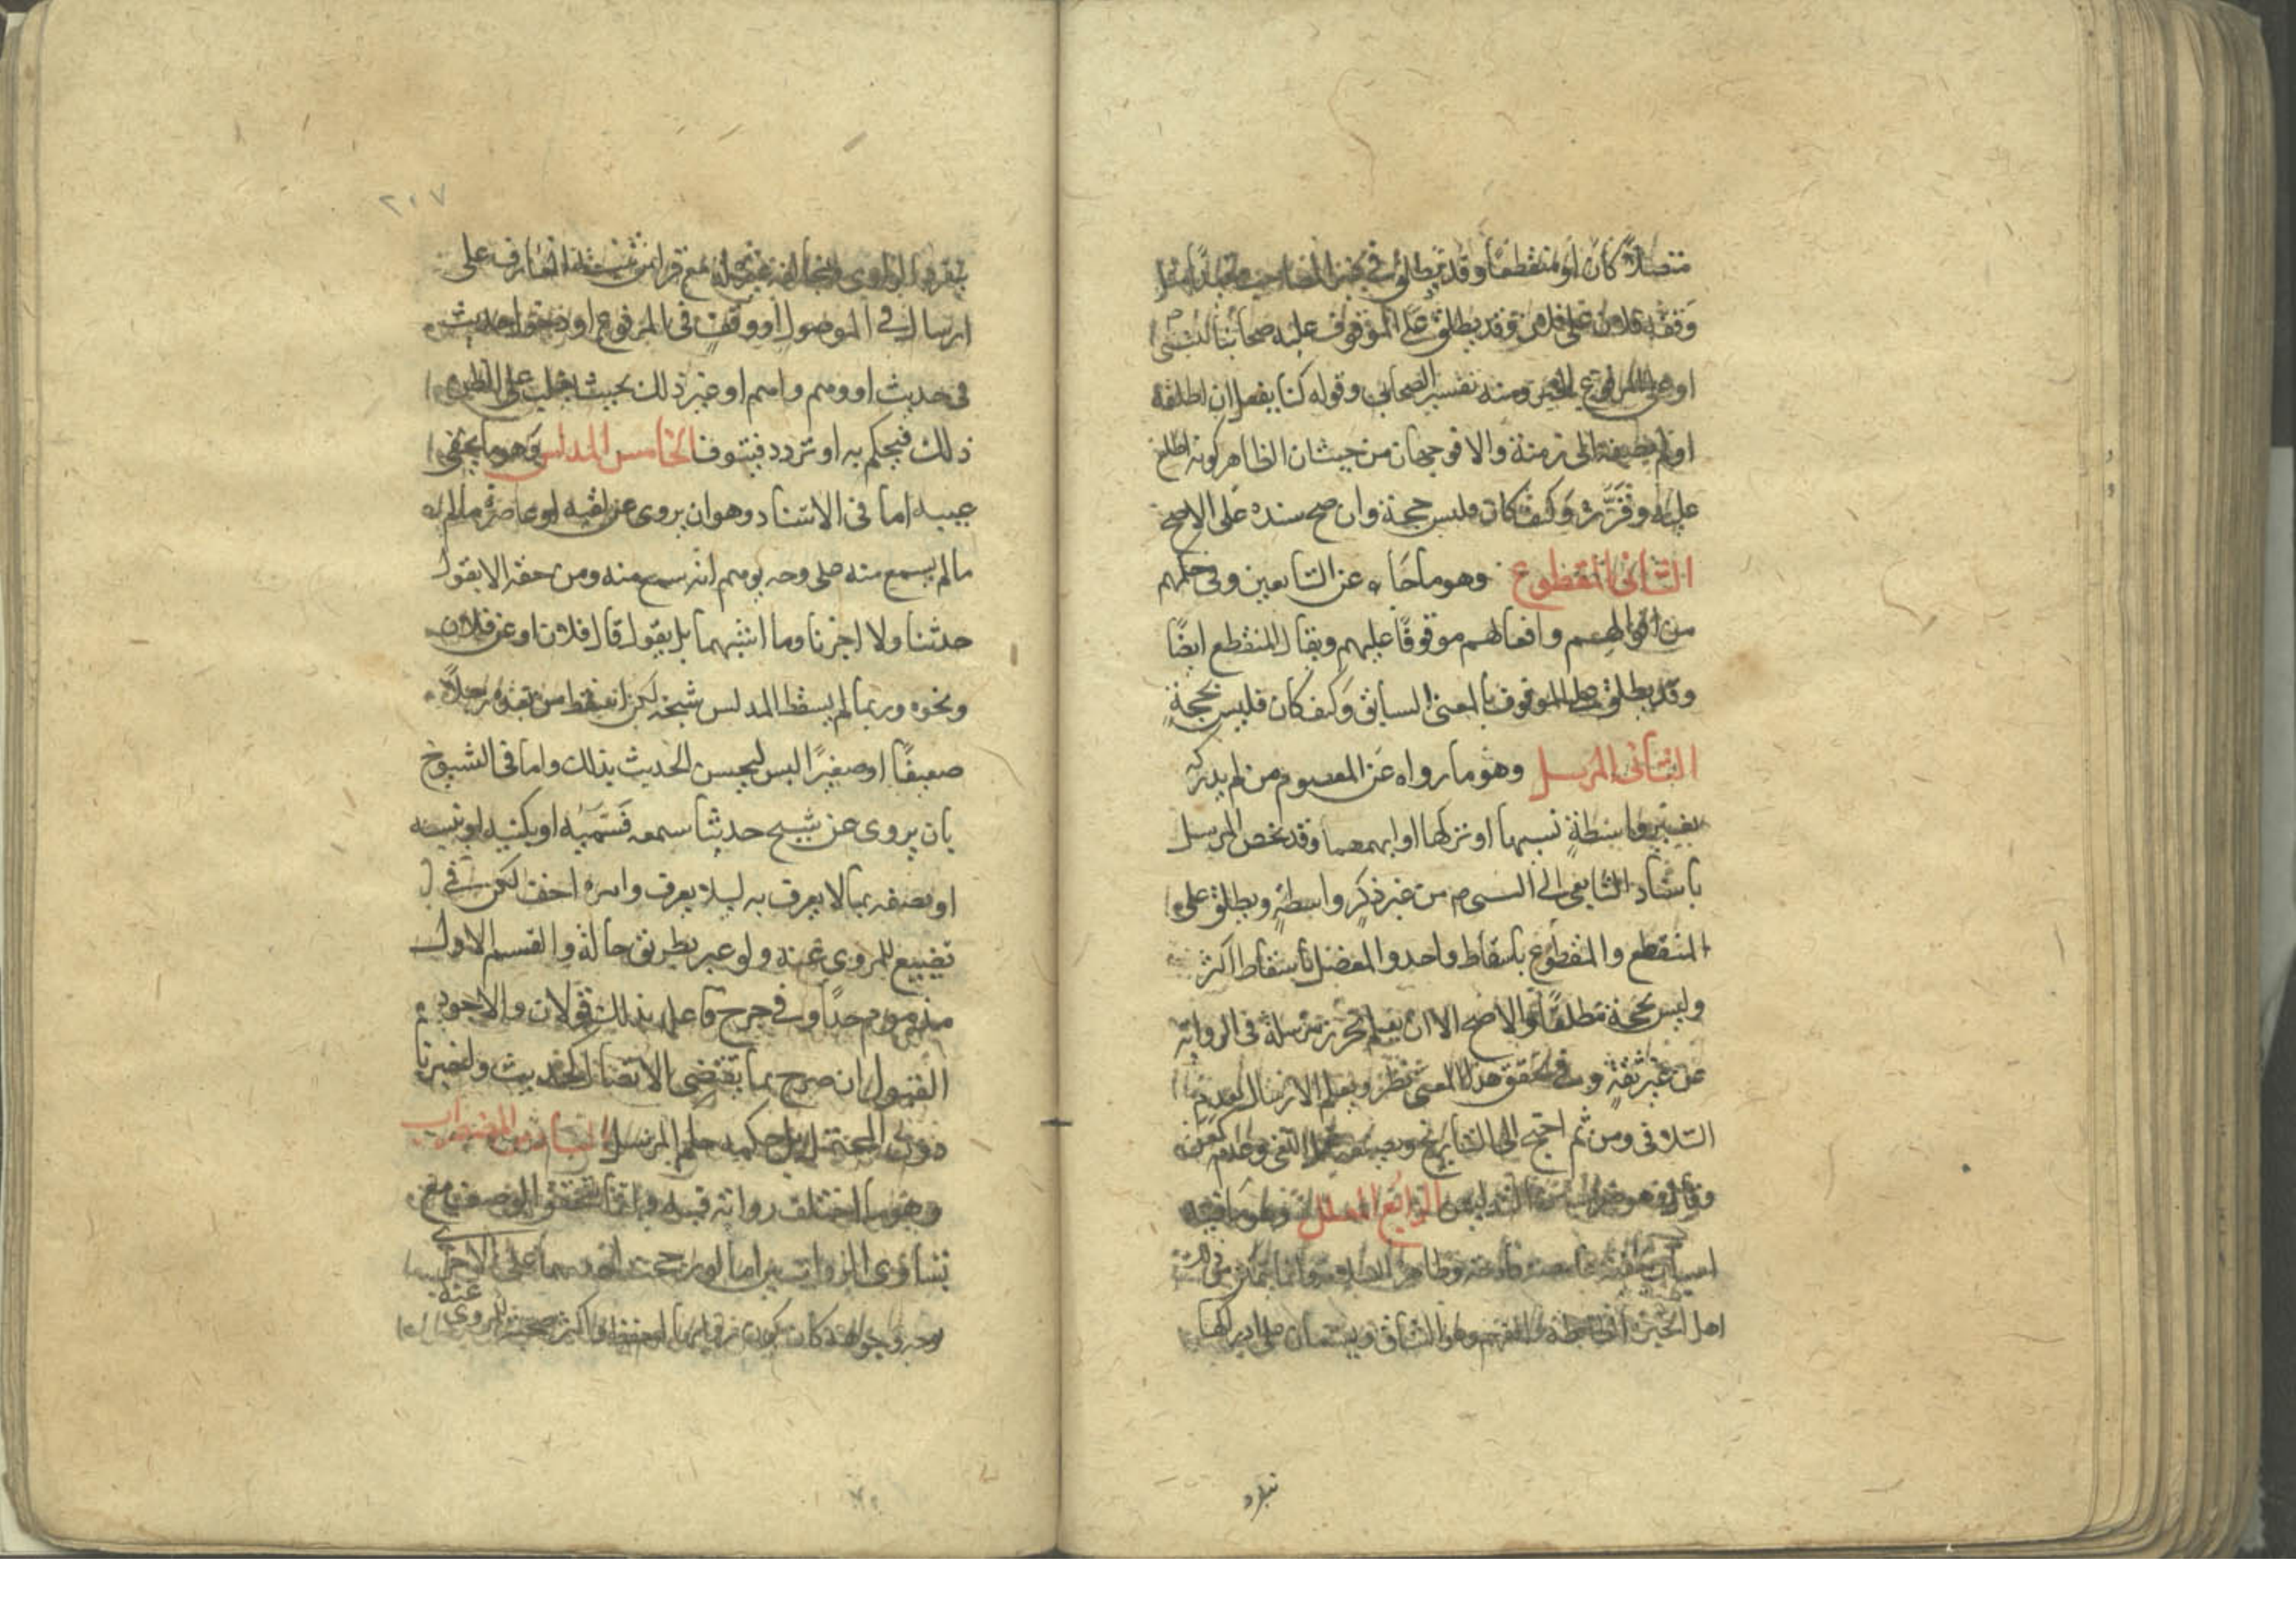 متصلا كان او منقطعا وقد يطلق في غير المصاحب مقيدا مثل
وقفه فلان على فلان وقد يطلق على الموقوف عليه صحابيا
او على المرفوع ومنه تفسير الصحابي وقوله كنا نفعل ان اطلقه
او لم يضفه الى زمنه والا فوجهان من حيث ان الظاهر كونه اطلع
عليه وقرره وكيف كان فليس حجة وان صح سنده على الاصح
الثاني المقطوع وهو ما جاء عن التابعين وفي حكمهم
من اقوالهم وافعالهم موقوفا عليهم ويقال المنقطع ايضا
وقد يطلق على الموقوف بالمعنى السابق وكيف كان فليس بحجة
الثاني المرسل وهو ما رواه عن المعصوم من لم يدركه
بغير واسطة نسيها او تركها او ابهمها وقد يخص المرسل
باسناد التابعي الى النبي م من غير ذكر واسطة ويطلق على
المنقطع والمقطوع باسقاط واحد والمعضل باسقاط اكثر
وليس بحجة مطلقا والاصح الا ان يعلم تحرز مرسله في الرواية
عن غير ثقة وفي تحقق هذا المعنى نظر ويعلم الارسال بعدم
التلاقي ومن ثم احتيج الى التاريخ
وهو ضرب من التدليس الرابع المعلل وهو ما فيه
اسباب خفية غامضة قادحة وظاهره السلامة وانما يتمكن من
اهل الخبرة
٢٠٧
بتفرد الراوي وبمخالفة غيره له مع قرائن تنبه العارف على
ارسال في الموصول او وقف في المرفوع او دخول حديث
في حديث او وهم واهم او غير ذلك بحيث يغلب على الظن
ذلك فيحكم به او تردد فيتوقف الخامس المدلس وهو ما يخفى
عيبه اما في الاسناد وهو ان يروى عن لقيه او عاصره ما لم
ما لم يسمع منه على وجه يوهم انه سمع منه ومن حقه الا يقول
حدثنا ولا اخبرنا وما اشبههما بل يقول قال فلان او عن فلان
ونحوه وربما لم يسقط المدلس شيخه لكن اسقط من بعده رجلا
ضعيفا او صغيرا السن ليحسن الحديث بذلك واما في الشيوخ
بان يروى عن شيخ حديثا سمعه فيسميه او يكنيه او ينسبه
او يصفه بما لا يعرف به ليلا يعرف وامره اخف لكن في
تضييع للمروى عنه ولو عبر بطريق حاله والقسم الاول
مذموم جدا وفي جرح فاعله بذلك قولان والاجود
القبول ان صرح بما يقتضى الاتصال كحدثنا واخبرنا
دون المحتمل بل حكمه حكم المرسل السادس المضطرب
وهو ما اختلف رواته فيه وانما يتحقق الوصف مع
تساوى الروايتين اما لو رجحت احديهما على الاخرى
بوجه
المروى عنه